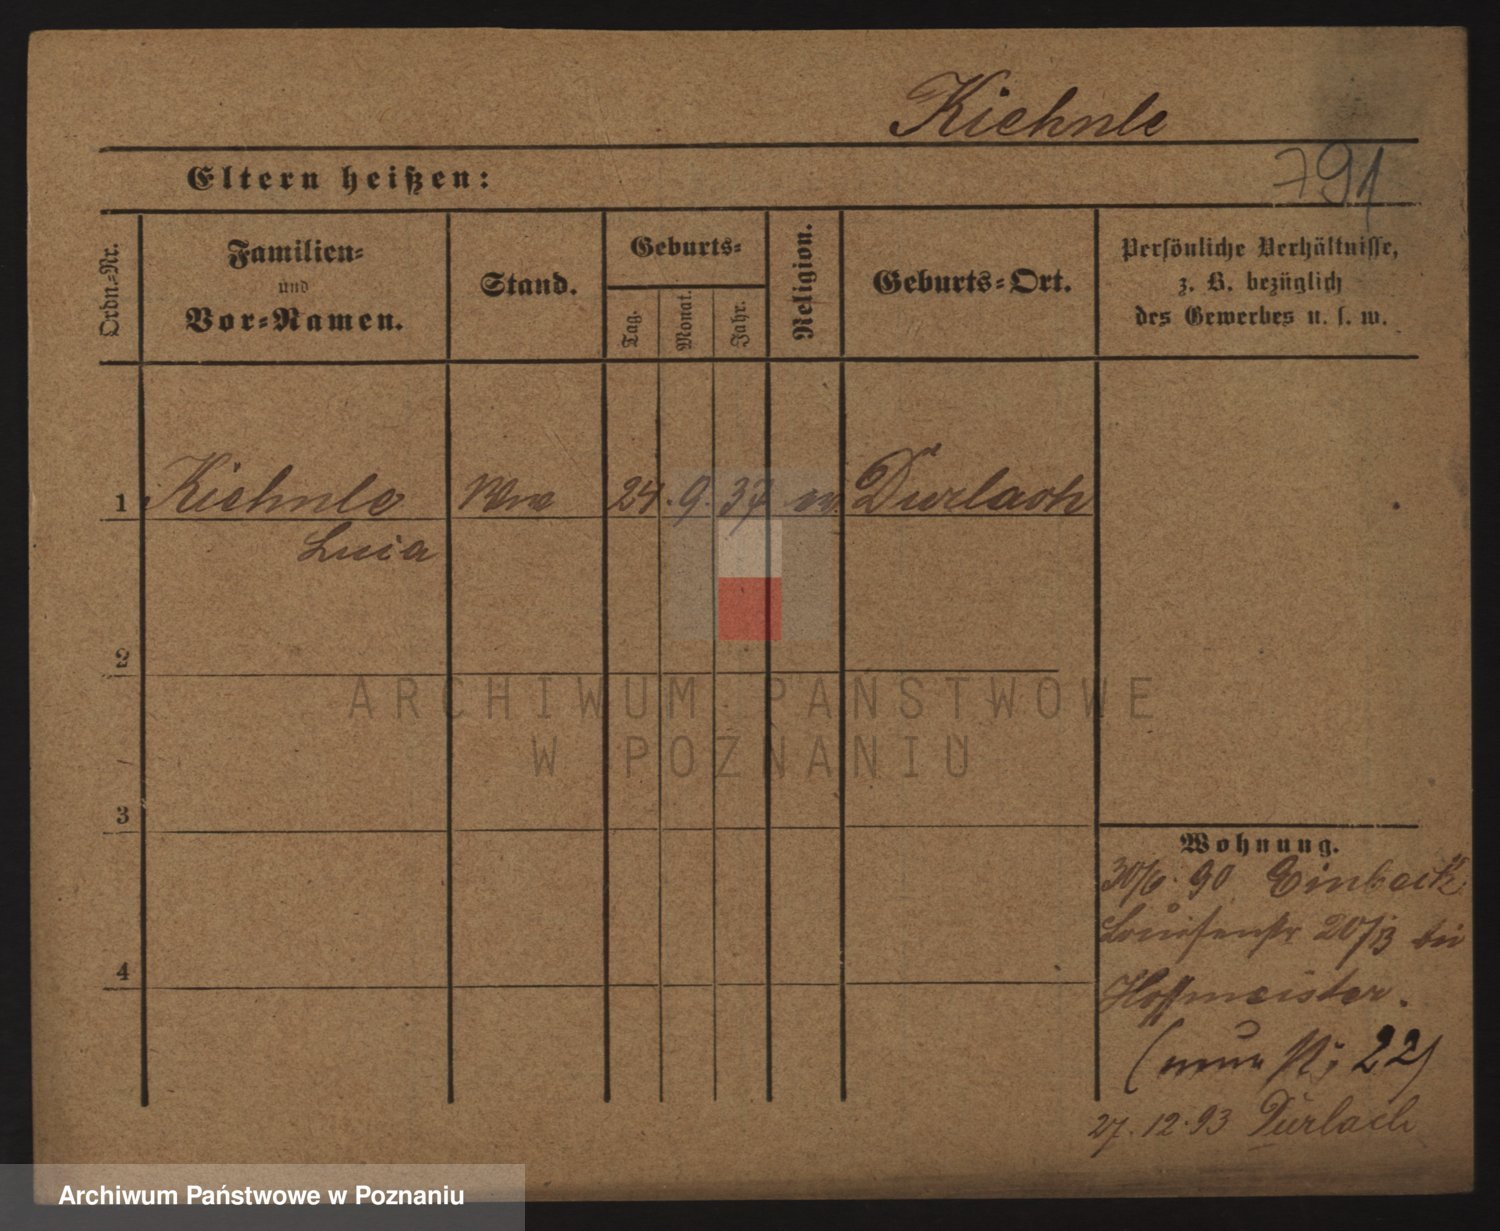 Kiehnle
791
Eltern heißen:
Ordn.-Nr.
Familien-
und
Vor-Namen.
Stand.
Geburts-
Tag.
Monat.
Jahr.
Religion.
Geburts-Ort.
Persönliche Verhältnisse,
z. B. bezüglich
des Gewerbes u. s. w.
1 Kiehnle Wwe 24. 9. 37 ev. Durlach
Lucia
2
ARCHIWUM PAŃSTWOWE
W POZNANIU
3
4
Wohnung.
30/6. 90 Einbeck
Louisenstr 20/3 bei
Hoffmeister.
(neue 22)
27. 12. 93 Durlach
Archiwum Państwowe w Poznaniu